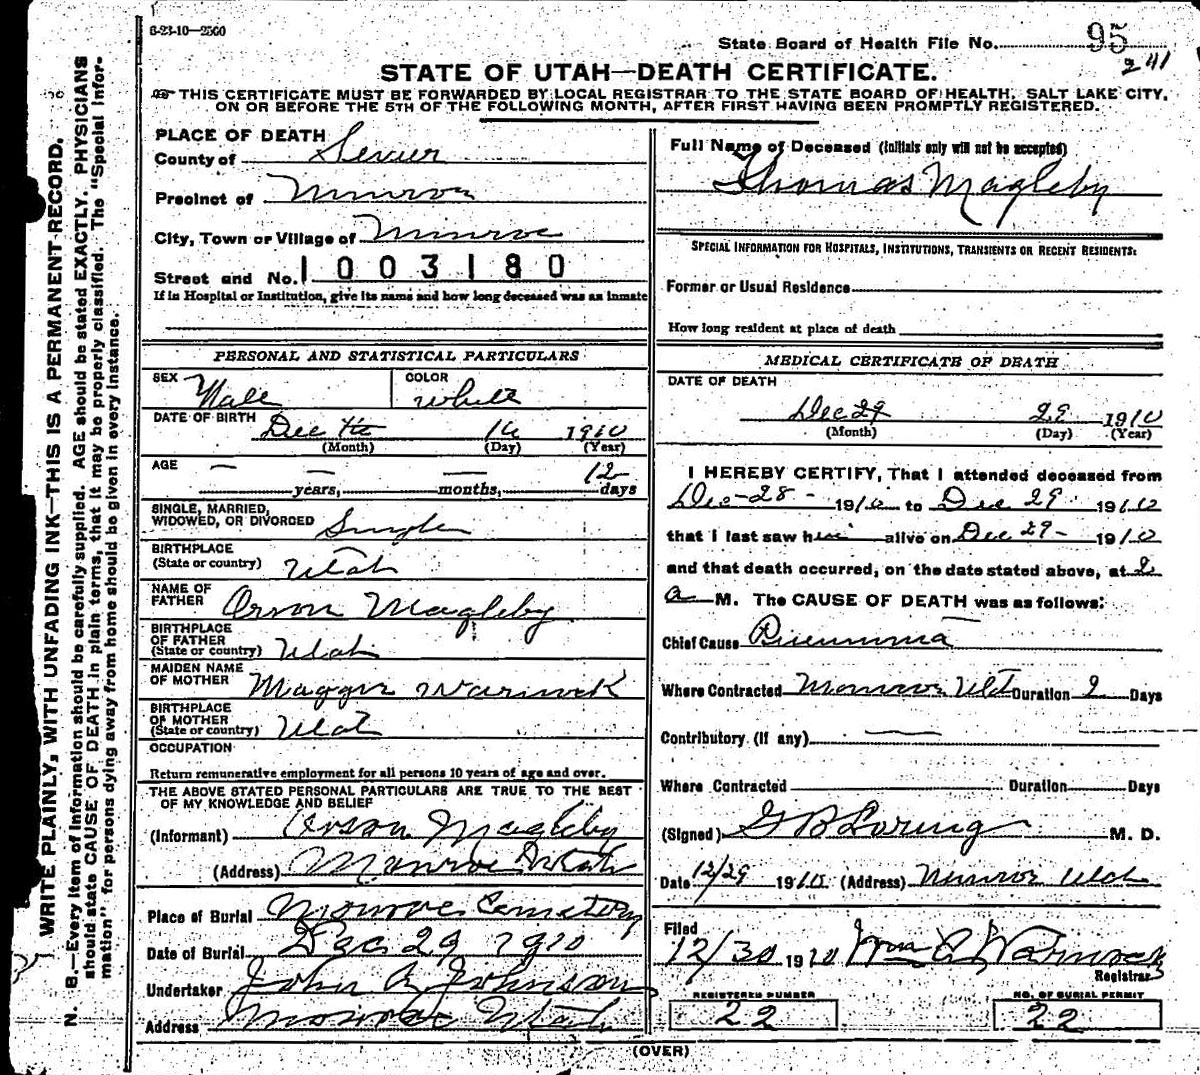 6-23-10—2500
State Board of Health File No. 95
241
STATE OF UTAH—DEATH CERTIFICATE.
THIS CERTIFICATE MUST BE FORWARDED BY LOCAL REGISTRAR TO THE STATE BOARD OF HEALTH, SALT LAKE CITY,
ON OR BEFORE THE 5TH OF THE FOLLOWING MONTH, AFTER FIRST HAVING BEEN PROMPTLY REGISTERED.
WRITE PLAINLY, WITH UNFADING INK—THIS IS A PERMANENT RECORD.
N. B.—Every item of information should be carefully supplied. AGE should be stated EXACTLY. PHYSICIANS
should state CAUSE OF DEATH in plain terms, that it may be properly classified. The "Special Infor-
mation" for persons dying away from home should be given in every instance.
PLACE OF DEATH
County of Sevier
Precinct of Monroe
City, Town or Village of Monroe
Street and No. 1003180
If in Hospital or Institution, give its name and how long deceased was an inmate
PERSONAL AND STATISTICAL PARTICULARS
SEX Male COLOR White
DATE OF BIRTH Dec the 16 1910
(Month) (Day) (Year)
AGE — — — 12
years, months, days
SINGLE, MARRIED,
WIDOWED, OR DIVORCED Single
BIRTHPLACE
(State or country) Utah
NAME OF
FATHER Orson Magleby
BIRTHPLACE
OF FATHER
(State or country) Utah
MAIDEN NAME
OF MOTHER Maggie Warnock
BIRTHPLACE
OF MOTHER
(State or country) Utah
OCCUPATION
Return remunerative employment for all persons 10 years of age and over.
THE ABOVE STATED PERSONAL PARTICULARS ARE TRUE TO THE BEST
OF MY KNOWLEDGE AND BELIEF
(Informant) Orson Magleby
(Address) Monroe Utah
Place of Burial Monroe Cemetery
Date of Burial Dec 29 1910
Undertaker John A Johnson
Address Monroe Utah
Full Name of Deceased (Initials only will not be accepted)
Thomas Magleby
SPECIAL INFORMATION FOR HOSPITALS, INSTITUTIONS, TRANSIENTS OR RECENT RESIDENTS:
Former or Usual Residence
How long resident at place of death
MEDICAL CERTIFICATE OF DEATH
DATE OF DEATH
Dec 29 29 1910
(Month) (Day) (Year)
I HEREBY CERTIFY, That I attended deceased from
Dec-28- 1910 to Dec 29 1910
that I last saw him alive on Dec 29- 1910
and that death occurred, on the date stated above, at 2
a M. The CAUSE OF DEATH was as follows:
Chief Cause Pneumonia
Where Contracted Monroe Utah Duration 2 Days
Contributory (if any) —
Where Contracted Duration Days
(Signed) G B Loring M. D.
Date 12/29 1910 (Address) Monroe Utah
Filed
12/30 1910 Wm A Warnock
Registrar
REGISTERED NUMBER
22
NO. OF BURIAL PERMIT
22
(OVER)